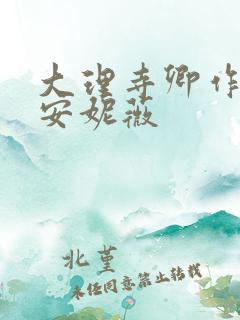 大理寺卿作
安妮薇
北堇
未经同意禁止转载